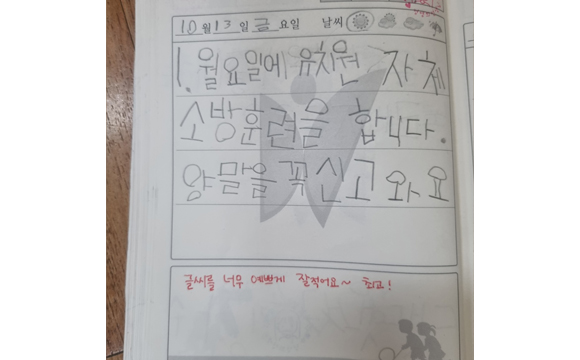 10월 13일 금요일 날씨
1. 월요일에 유치원 자체
소방훈련을 합니다.
양말을 꼭 신고 와요
글씨를 너무 예쁘게 잘적어요~ 최고!